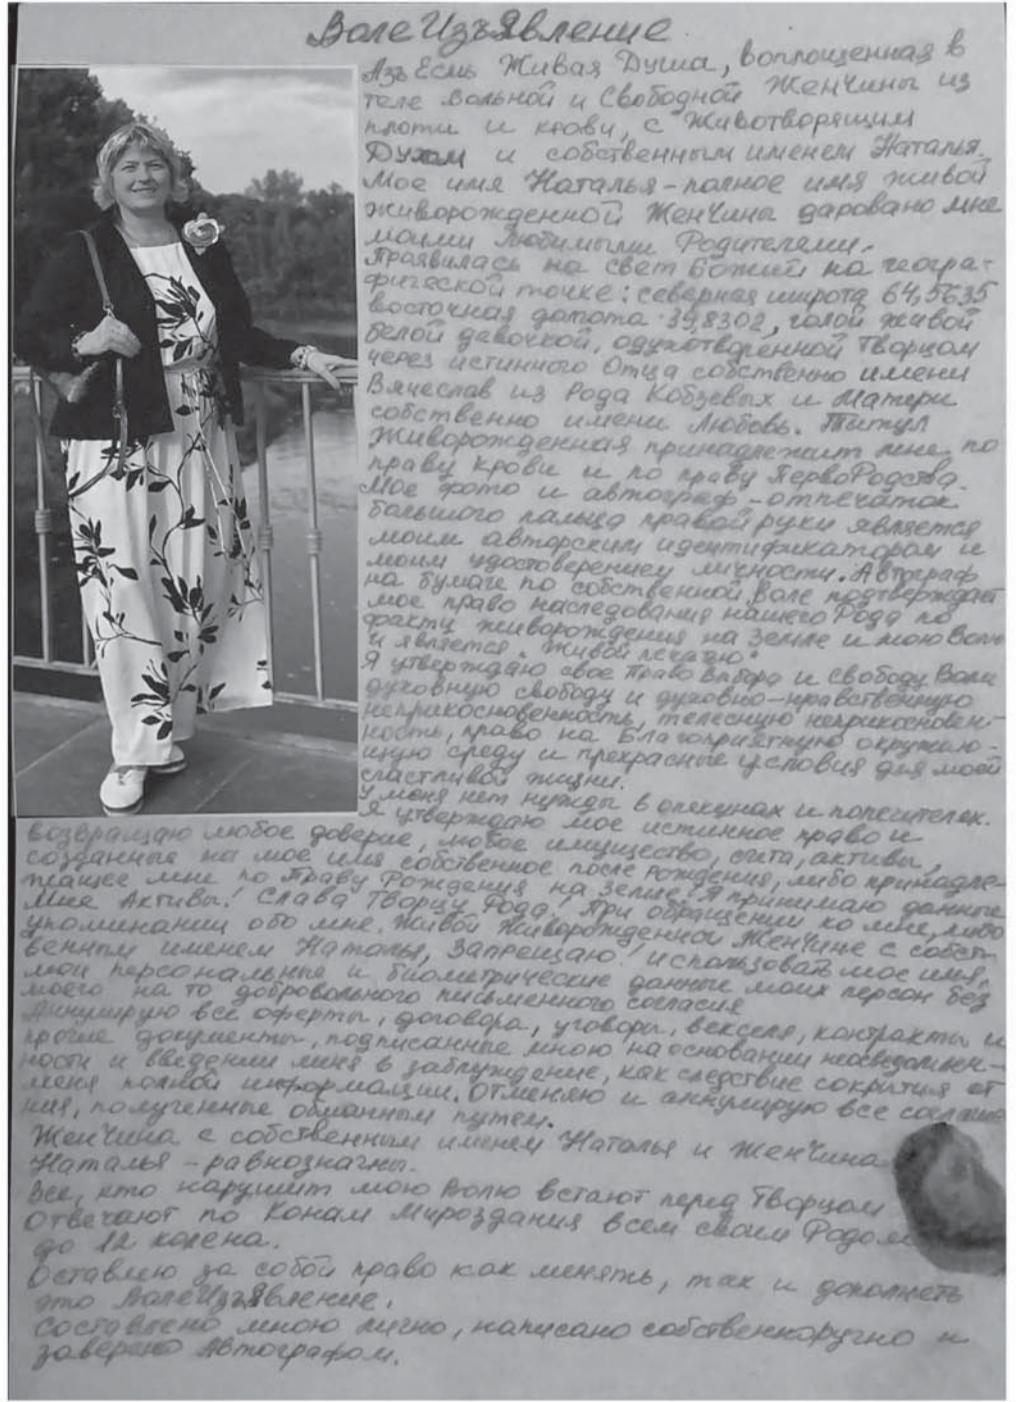 ВолеИзъЯвление
Азъ Есмь Живая Душа, воплощенная в
теле Вольной и Свободной ЖенЧины из
плоти и крови, с Животворящим
Духом и собственным именем Наталья.
Мое имя Наталья - полное имя живой
живорожденной ЖенЧины даровано мне
моими Любимыми Родителями.
Проявилась на свет Божий на геогра-
фической точке: северная широта 64,5635
восточная долгота 39,8302, голой живой
белой девочкой, одухотворённой Творцом
через истинного Отца собственно имени
Вячеслав из Рода Кобзевых и Матери
собственно имени Любовь. Титул
Живорожденная принадлежит мне по
праву крови и по праву ПервоРодства.
Мое фото и автограф - отпечаток
большого пальца правой руки является
моим авторским идентификатором и
моим удостоверением личности. Автограф
на бумаге по собственной Воле подтверждает
мое право наследования нашего Рода по
факту живорождения на Земле и мою Волю
и является "Живой печатью".
Я утверждаю свое Право Выбора и Свободу Воли
духовную свободу и духовно-нравственную
неприкосновенность, телесную неприкосновен-
ность, право на Благоприятную окружаю-
щую среду и прекрасные условия для моей
счастливой жизни.
У меня нет нужды в опекунах и попечителях.
Я утверждаю мое истинное право и
возвращаю любое доверие, любое имущество, счета, активы,
созданные на мое имя собственное после рождения, либо принадле-
жащее мне по Праву Рождения на Земле! Я принимаю данные
Мне Активы! Слава Творцу Рода! При обращении ко мне, либо
упоминании обо мне. Живой Живорожденной ЖенЧине с собст-
венным именем Наталья, Запрещаю! использовать мое имя,
мои персональные и биометрические данные моих персон без
моего на то добровольного письменного согласия
Аннулирую все оферты, договора, уговоры, векселя, контракты и
прочие документы, подписанные мною на основании неосведомлен-
ности и введении меня в заблуждение, как следствие сокрытия от
меня полной информации. Отменяю и аннулирую все соглаше
ния, полученные обманным путем.
ЖенЧина с собственным именем Наталья и ЖенЧина
Наталья - равнозначны.
Все, кто нарушит мою Волю встают перед Творцом
Отвечают по Конам Мироздания всем своим Родом
до 12 колена.
Оставлю за собой право как менять, так и дополнять
это ВолеИзъЯвление.
Составлено мною лично, написано собственноручно и
заверено Автографом.